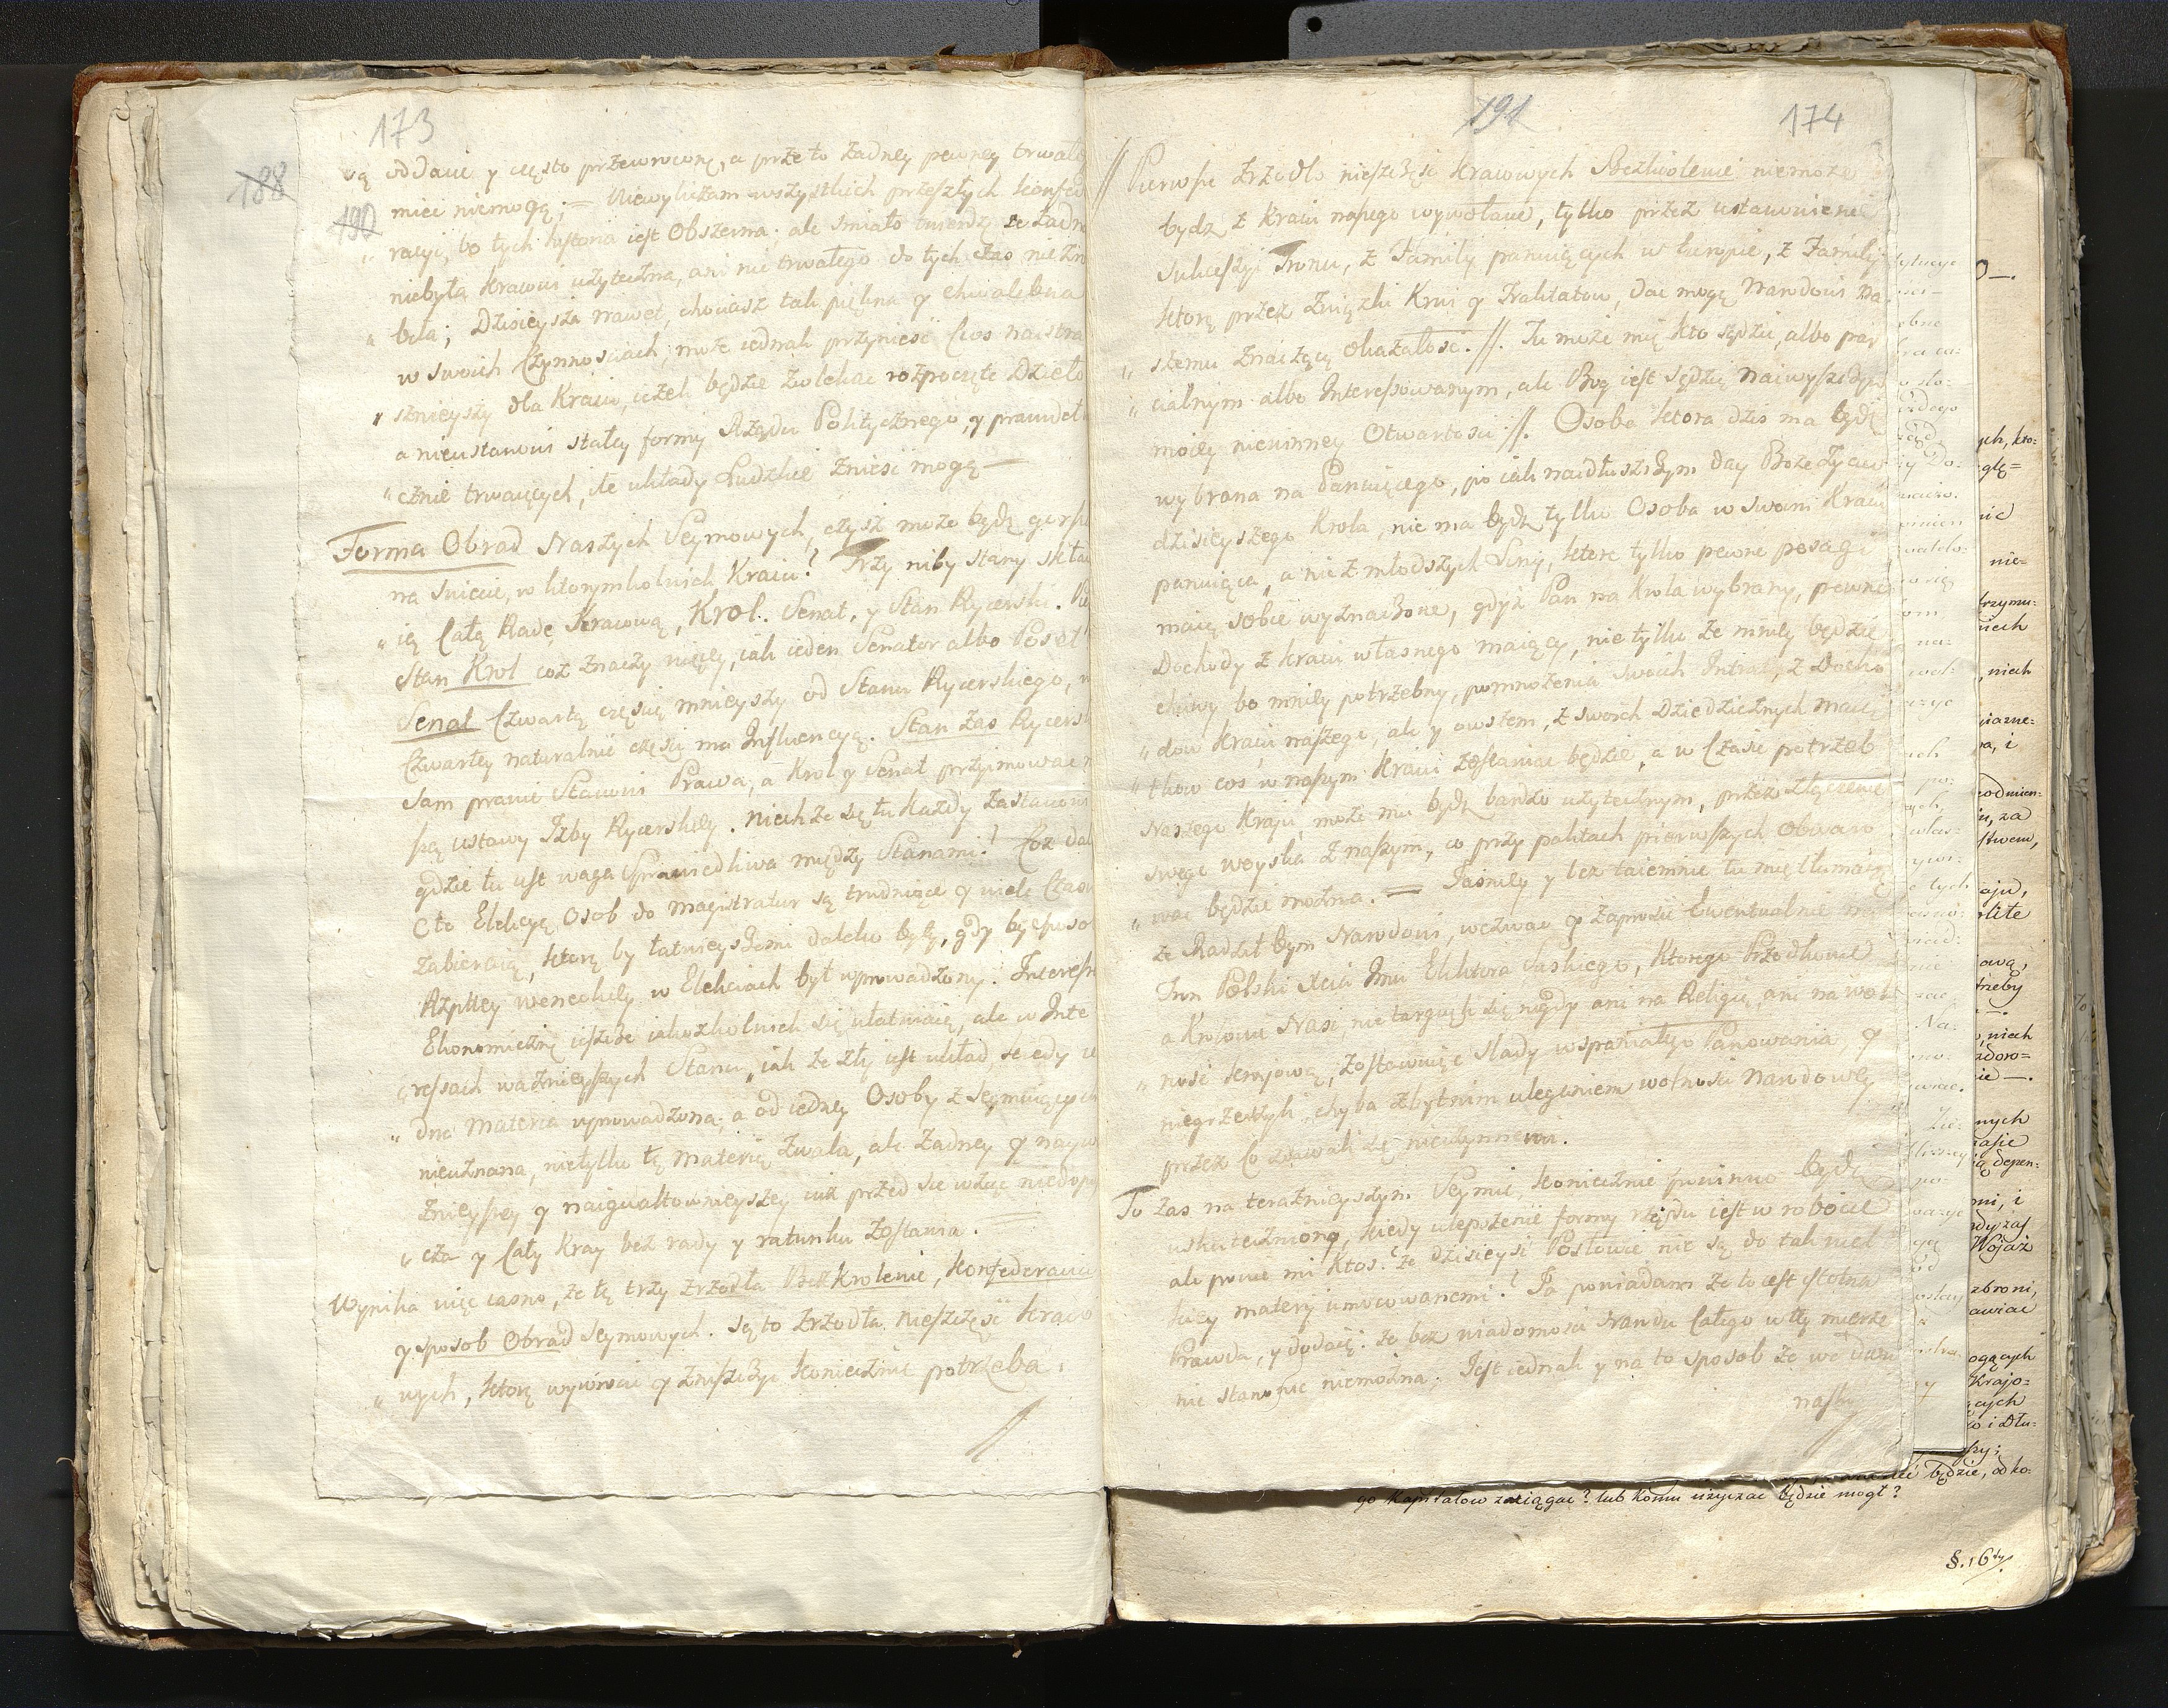 173
188
190
są oddani y często przewrocone, a przeto żadney pewney trwało
mieć niemogą; = Niewyliczam wszystkich przeszłych konfede
„ racyi, bo tych historia iest Obszerna; ale śmiało twierdzę że żadna
niebyła Kraiowi użyteczna, ani nic trwałego do tych czas nie zro
„ biła; Dzisieysza nawet, chociasz tak piękna y chwalebna
w swoich Czynnosciach, może iednak przyniesć Cios naystra
„ sznieyszy dla Kraiu, ieżeli będzie zwlekac rozpoczęte Dzieło
a nieustanowi stałey formy Rządu Politycznego, y prawdzi
„ cznie trwaiących, ile układy Ludzkie znieść mogą —
Forma Obrad Naszych Seymowych, czysz może bydź gorsza
na Swiecie, w ktorymkolwiek Kraiu? Trzy niby stany skład
„ ią Całą Radę Kraiową, Krol. Senat, y Stan Rycerski. Pie
Stan Krol coż znaczy więcey, iak ieden Senator albo Poseł
Senat Czwartą częscią mnieyszy od Stanu Rycerskiego, w
Czwartey naturalnie częsci ma Influencyą. Stan zas Rycersk
Sam prawie Stanowi Prawa, a Krol y Senat przyimowac m
szą ustawy Izby Rycerskiey. Niechże się tu każdy zastanowi
gdzie tu iest waga Sprawiedliwa między Stanami? Coż dal
Cto Elekcyą Osob do magistratur są trudniące y wiele Czasu
zabieraią, ktore by łatwieyszemi daleko były, gdy by sposob
Rzpltey weneckiey w Elekciach był wprowadzony. Interesse
Ekonomiczne ieszcze iakożkolwiek się ułatwiaią, ale w Inte
„ ressach ważnieyszych Stanu, iak że zły iest układ, że edy ie
„ dna materia wprowadzona, a od iedney Osoby z Seymuiących
nieuznana, nietylko tę materią zwala, ale żadney y nayw
żnieyszey y naigwałtownieyszey iuż przed się wziąć niedopus
„ cza y Cały Kray bez rady y ratunku zostania. =
Wynika więc iasno, że tę trzy zrzodła Bezkrolenie, konfederacie
y sposob Obrad Seymowych. Są to Zrzodła nieszczęsć kraio
„ wych, ktore wywrocic y zniszczyc koniecznie potrzeba.
191
174
// Pierwsze zrzodło nieszczęsc kraiowych Bezkrolenie niemoże
bydz z Kraiu naszego wywołane, tylko przez ustanowienie
Sukcessyi Tronu, z Familii panuiących w Europie, z Familij
ktorą przez związki Krwi y Traktatow, dac mogą Narodowi na
„ szemu znaczącą okazałosć. //. Tu może mię kto sądzić, albo par
„ cialnym albo Interessowanym, ale Bog iest Sędzią naiwyszszym
moiey niewinney Otwartosci //. Osoba ktora dzis ma bydź
wybrana na Panuiącego, po iak naidłuszszym day Boże życiu
dzisieyszego Krola, nie ma bydz tylko Osoba w swoim Kraiu
panuiąca, a nie z młodszych Linij, ktore tylko pewne posagi
maią sobie wyznaczone, gdyż Pan na Krola wybrany, pewne
Dochody z kraiu własnego maiący, nie tylko że mniey będzie
chciwy bo mniey potrzebny, pomnożenia swoich Intrat, z Docho
„ dow Kraiu naszego, ale y owszem, z swoich Dziedzicznych maią
„ tkow cos w naszym kraiu zostawiac będzie, a w Czasie potrzeb
Naszego Kraju, może mu bydź bardzo użytecznym, przez złączenie
swego woyska z naszym, co przy paktach pierwszych obwaro
„ wac będzie można. = Jasniey y bez taiemnie tu mię tłumaczę
że Radził bym Narodowi, wezwac y zaprosić Ewentualnie na
Tron Polski Xcia Jmci Elektora Saskiego, Ktorego Przodkowie
a Krolowie Nasi, nie targnęli się nigdy ani na Religię, ani na wol
„ nosć kraiową, zostawuiąc slady wspaniałego Panowania, y
niegrzeszyli chyba zbytnim uleganiem wolnosci Narodowey
przez Co zdawali się nieczynnemi.
To zas na teraźnieyszym Seymie, koniecznie powinno bydź
uskutecznione, kiedy ulepszenie formy rządu iest w robocie
ale powie mi Ktos: że dzisieysi Posłowie nie są do tak wiel
kiey materyi umocowanemi? Ja powiadam że to iest istotna
Prawda, y dodaię: że bez wiadomosci Narodu Całego w tey mierze
nic stanowic niemożna; Jest iednak y na to sposob że we dwu
nasty
go Kapitałow zaciągac? lub Komu użyczac będzie mogł?
będzie, od ko:
§. 16ty